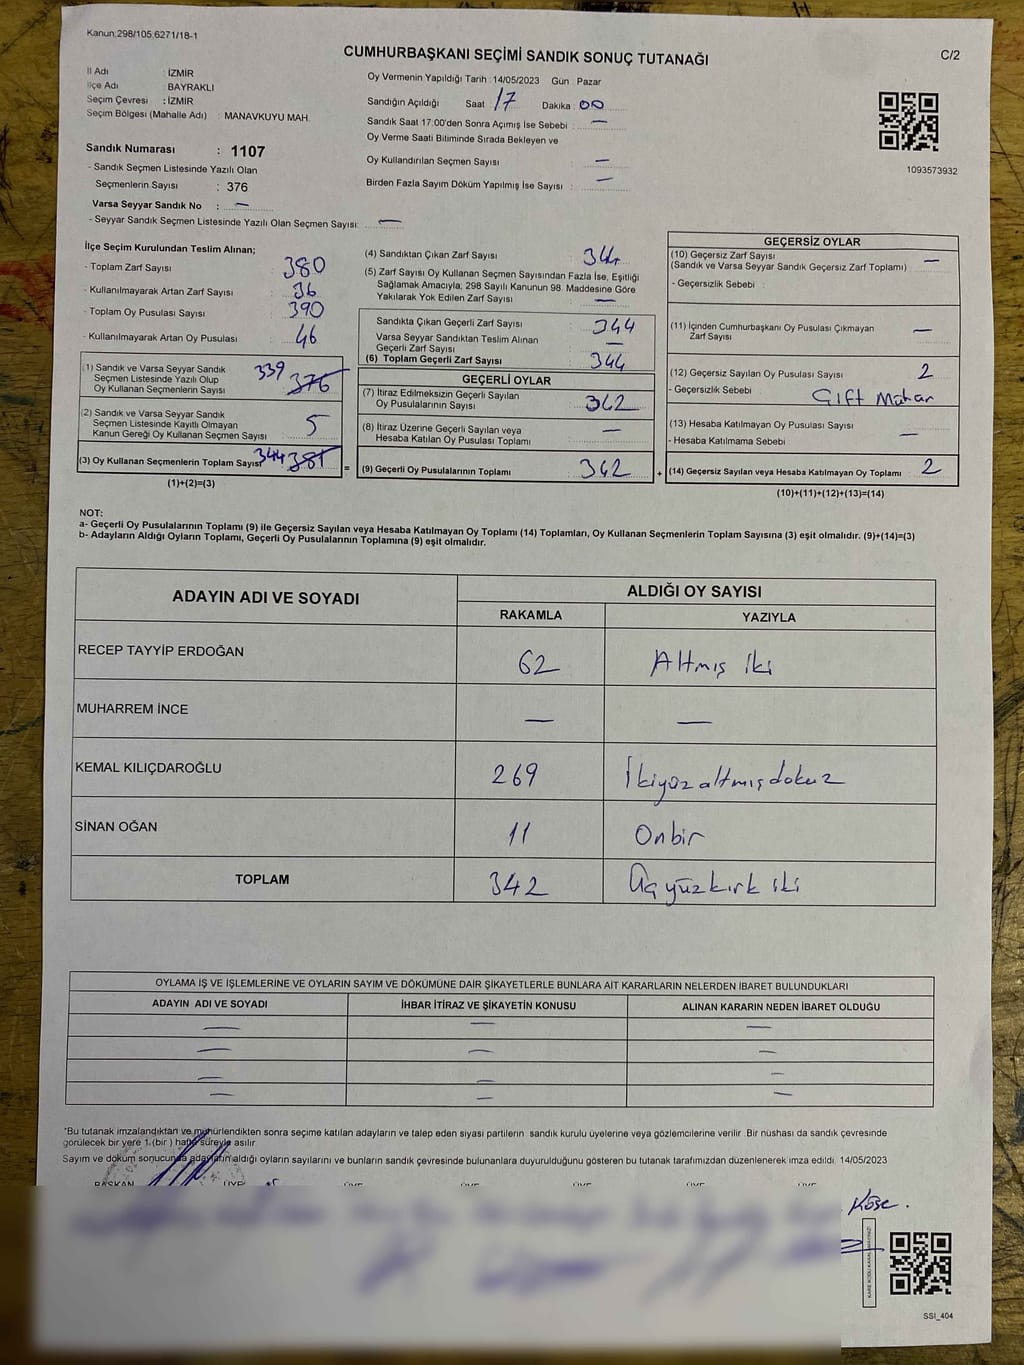 Kanun;298/105;6271/18-1
CUMHURBAŞKANI SEÇİMİ SANDIK SONUÇ TUTANAĞI
C/2
İl Adı : İZMİR
İlçe Adı : BAYRAKLI
Seçim Çevresi : İZMİR
Seçim Bölgesi (Mahalle Adı) : MANAVKUYU MAH.
Sandık Numarası : 1107
- Sandık Seçmen Listesinde Yazılı Olan
Seçmenlerin Sayısı : 376
Varsa Seyyar Sandık No : —
- Seyyar Sandık Seçmen Listesinde Yazılı Olan Seçmen Sayısı: —
Oy Vermenin Yapıldığı Tarih : 14/05/2023 Gün : Pazar
Sandığın Açıldığı Saat 17 Dakika 00
Sandık Saat 17:00'den Sonra Açımış İse Sebebi : —
Oy Verme Saati Bitiminde Sırada Bekleyen ve
Oy Kullandırılan Seçmen Sayısı : —
Birden Fazla Sayım Döküm Yapılmış İse Sayısı : —
1093573932
İlçe Seçim Kurulundan Teslim Alınan;
- Toplam Zarf Sayısı : 380
- Kullanılmayarak Artan Zarf Sayısı : 36
- Toplam Oy Pusulası Sayısı : 390
- Kullanılmayarak Artan Oy Pusulası : 46
(1) Sandık ve Varsa Seyyar Sandık
Seçmen Listesinde Yazılı Olup
Oy Kullanan Seçmenlerin Sayısı : 339 376
(2) Sandık ve Varsa Seyyar Sandık
Seçmen Listesinde Kayıtlı Olmayan
Kanun Gereği Oy Kullanan Seçmen Sayısı : 5
(3) Oy Kullanan Seçmenlerin Toplam Sayısı 344 381
(1)+(2)=(3)
(4) Sandıktan Çıkan Zarf Sayısı : 344
(5) Zarf Sayısı Oy Kullanan Seçmen Sayısından Fazla İse, Eşitliği
Sağlamak Amacıyla, 298 Sayılı Kanunun 98. Maddesine Göre
Yakılarak Yok Edilen Zarf Sayısı : —
Sandıkta Çıkan Geçerli Zarf Sayısı : 344
Varsa Seyyar Sandıktan Teslim Alınan
Geçerli Zarf Sayısı : —
(6) Toplam Geçerli Zarf Sayısı : 344
GEÇERLİ OYLAR
(7) İtiraz Edilmeksizin Geçerli Sayılan
Oy Pusulalarının Sayısı : 342
(8) İtiraz Üzerine Geçerli Sayılan veya
Hesaba Katılan Oy Pusulası Toplamı : —
= (9) Geçerli Oy Pusulalarının Toplamı : 342
GEÇERSİZ OYLAR
(10) Geçersiz Zarf Sayısı : —
(Sandık ve Varsa Seyyar Sandık Geçersiz Zarf Toplamı)
- Geçersizlik Sebebi :
(11) İçinden Cumhurbaşkanı Oy Pusulası Çıkmayan
Zarf Sayısı : —
(12) Geçersiz Sayılan Oy Pusulası Sayısı : 2
- Geçersizlik Sebebi : Çift Mühar
(13) Hesaba Katılmayan Oy Pusulası Sayısı :
- Hesaba Katılmama Sebebi : —
+ (14) Geçersiz Sayılan veya Hesaba Katılmayan Oy Toplamı : 2
(10)+(11)+(12)+(13)=(14)
NOT:
a- Geçerli Oy Pusulalarının Toplamı (9) ile Geçersiz Sayılan veya Hesaba Katılmayan Oy Toplamı (14) Toplamları, Oy Kullanan Seçmenlerin Toplam Sayısına (3) eşit olmalıdır. (9)+(14)=(3)
b- Adayların Aldığı Oyların Toplamı, Geçerli Oy Pusulalarının Toplamına (9) eşit olmalıdır.
ADAYIN ADI VE SOYADI
ALDIĞI OY SAYISI
RAKAMLA YAZIYLA
RECEP TAYYİP ERDOĞAN 62 Altmış iki
MUHARREM İNCE — —
KEMAL KILIÇDAROĞLU 269 İkiyüzaltmışdokuz
SİNAN OĞAN 11 Onbir
TOPLAM 342 Üçyüzkırk iki
OYLAMA İŞ VE İŞLEMLERİNE VE OYLARIN SAYIM VE DÖKÜMÜNE DAİR ŞİKAYETLERLE BUNLARA AİT KARARLARIN NELERDEN İBARET BULUNDUKLARI
ADAYIN ADI VE SOYADI İHBAR İTİRAZ VE ŞİKAYETİN KONUSU ALINAN KARARIN NEDEN İBARET OLDUĞU
— — —
— — —
— — —
— — —
*Bu tutanak imzalandıktan ve mühürlendikten sonra seçime katılan adayların ve talep eden siyasi partilerin sandık kurulu üyelerine veya gözlemcilerine verilir. Bir nüshası da sandık çevresinde
görülecek bir yere 1.(bir ) hafta süreyle asılır
Sayım ve döküm sonucunda adayların aldığı oyların sayılarını ve bunların sandık çevresinde bulunanlara duyurulduğunu gösteren bu tutanak tarafımızdan düzenlenerek imza edildi. 14/05/2023
BAŞKAN ÜYE ÜYE ÜYE ÜYE ÜYE
Köse.
SSI_404